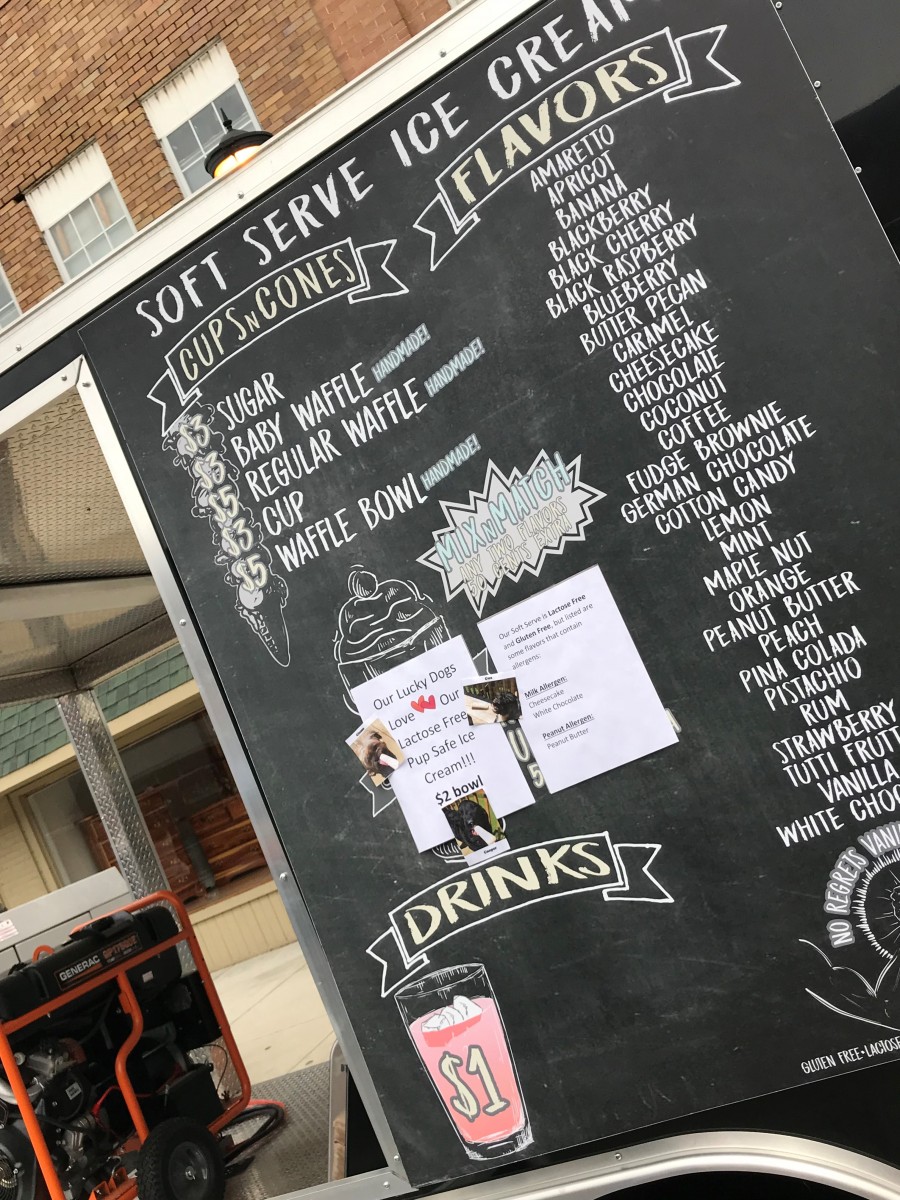 SOFT SERVE ICE CREAM
CUPS N CONES
$3 SUGAR
$3 BABY WAFFLE HANDMADE!
$5 REGULAR WAFFLE HANDMADE!
$3 CUP
$5 WAFFLE BOWL HANDMADE!
MIX N MATCH
ANY TWO FLAVORS
FLAVORS
AMARETTO
APRICOT
BANANA
BLACKBERRY
BLACK CHERRY
BLACK RASPBERRY
BLUEBERRY
BUTTER PECAN
CARAMEL
CHEESECAKE
CHOCOLATE
COCONUT
COFFEE
FUDGE BROWNIE
GERMAN CHOCOLATE
COTTON CANDY
LEMON
MINT
MAPLE NUT
ORANGE
PEANUT BUTTER
PEACH
PINA COLADA
PISTACHIO
RUM
STRAWBERRY
TUTTI FRUTT
VANILLA
WHITE CHOC
Our Lucky Dogs
Love Our
Lactose Free
Pup Safe Ice
Cream!!!
$2 bowl
Our Soft Serve is Lactose Free
and Gluten Free, but listed are
some flavors that contain
allergens:
Milk Allergen:
Cheesecake
White Chocolate
Peanut Allergen:
Peanut Butter
DRINKS
$1
NO REGRETS VANI
GLUTEN FREE•LACTOSE
GENERAC